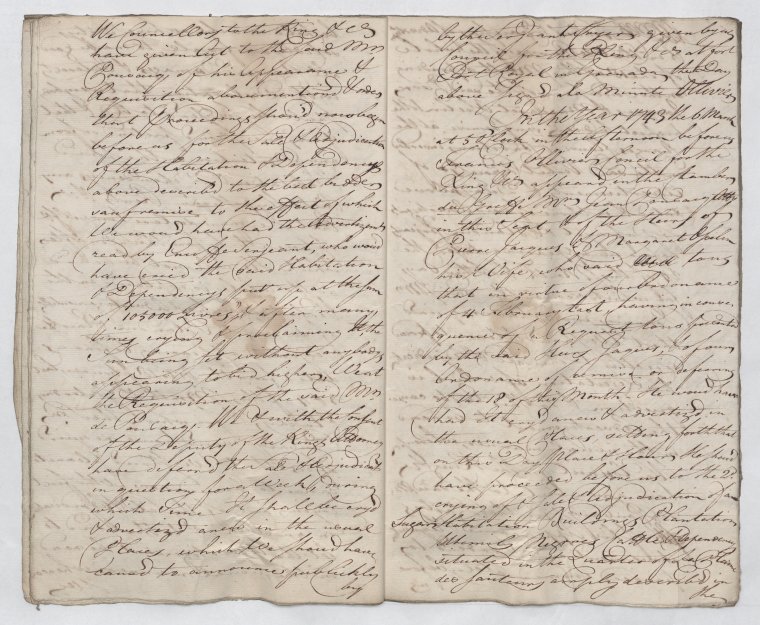 We Councellors to the King &ca
have given Act to the said Mr
of his Appearance &
Requisition abovementioned & order
that Proceedings shou'd now begin
before us for the Sale & Adjudication
of the Habitation & Dependencys
above describ'd to the best bidder
sans remise to the effect of which
We wou'd have had the Advertizements
read by Enu Serjeant, who wou'd
have cried the said Habitation
& Dependencys put up at the sum
of 105000 Livres & after many
times crying & proclaiming it, the
Sum being set without any body
appearing to bid higher, We at
the Requisition of the said Mr
de We with the
of the Deputy of the King's Attorney
have defer'd the Sale & Adjudication
in Question for a Week during
which time It shall be cry'd
& advertiz'd anew in the usual
Places, which We should have
caused to announce publickly
by
by the said given by us
Council for the King &ca at fort
Royal in Grenada the Day
above
In the Year 1743 the 6 March
at 5 Clock in the afternoon before
Ollivier Council for the
King &ca appeard in the Chamber
Mr Jean
in this of the Heirs of
Pierre Jaques & Margaret
his Wife, who said
that in virtue of our ordonnance
of 4 February last, having in conse
quence of a Request to us presented
by the said Heirs Jaques, & of our
Ordonnances of remise or defering
of the 18 of this Month He wou'd have
had it cry'd anew & advertiz'd in
the usual Places setting forth that
on this Day, Place & Hour, He shou'd
have proceeded before us to the 2d
crying of Sale & Adjudication of a
Sugar Habitation Buildings Plantation
Utensils Negroes Cattle & Dependencys
situated in the Quarter of
des amply describ'd in
the